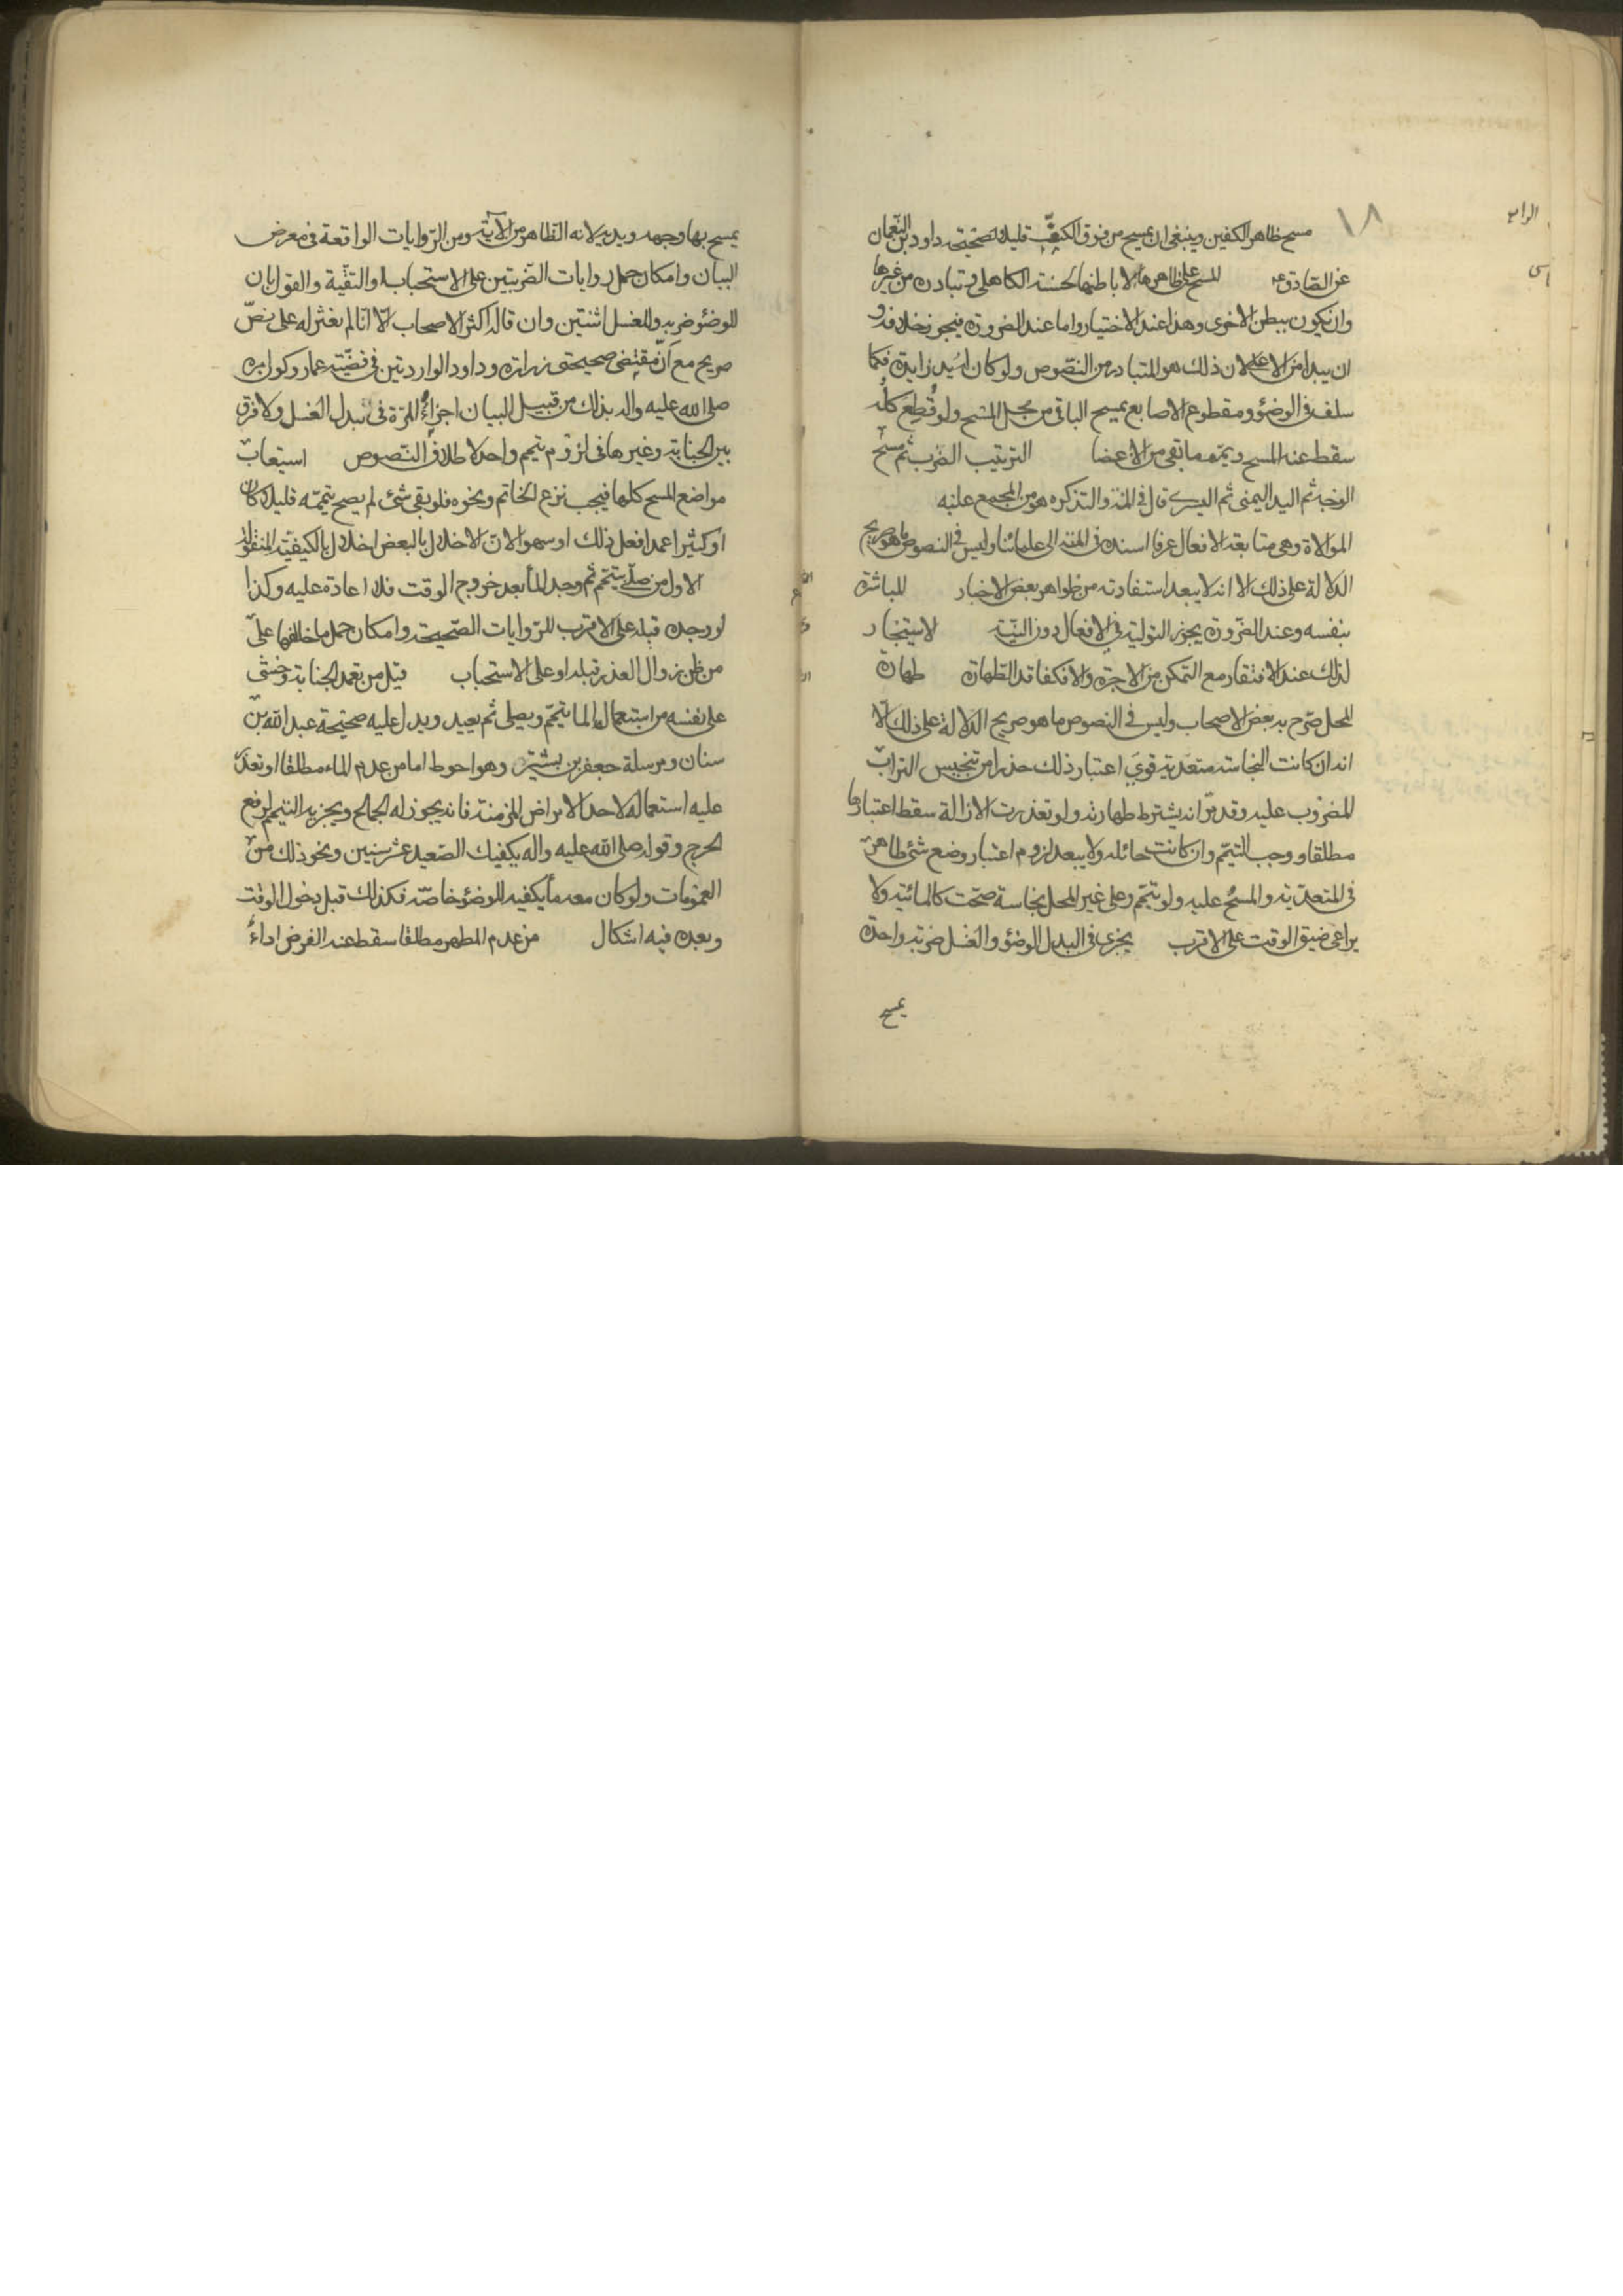 ١٨
مسح ظاهر الكفين وينبغي ان يمسح من فوق الكف قليلا لصحيحة داود بن النعمان
عن الصادق ع المسح على ظاهرها لا باطنها لحسنة الكاهلي وتبادره من غيرها
وان يكون ببطن الاخرى وهذا عند الاختيار واما عند الضرورة فيجوز خلافه و
ان يبدا من الاعلى لان ذلك هو المتبادر من النصوص ولو كان له يد زايدة فكما
سلف في الوضوء ومقطوع الاصابع يمسح الباقي من محل المسح ولو قطع كله
سقط عنه المسح وييمم ما بقي من الاعضا الترتيب الضرب ثم مسح
الوجه ثم اليد اليمنى ثم اليسرى قال في المنتهى والتذكره هو من المجمع عليه
الموالاة وهي متابعة الافعال عرفا اسنده في المنتهى الى علمائنا وليس في النصوص ما هو صريح
الدلالة على ذلك الا انه لا يبعد استفادته من ظواهر بعض الاخبار المباشرة
بنفسه وعند الضرورة يجوز التولية في الافعال دون النية الاستيجار
لذلك عند الافتقار مع التمكن من الاجرة والا فكفاقد الطهارة طهارة
المحل صرح به بعض الاصحاب وليس في النصوص ما هو صريح الدلالة على ذلك الا
انه ان كانت النجاسة متعدية قوي اعتبار ذلك حذرا من تنجيس التراب
المضروب عليه وقد مر انه يشترط طهارته ولو تعذرت الازالة سقط اعتبارها
مطلقا ووجب التيمم وان كانت حائله ولا يبعد لزوم اعتبار وضع شئ طاهر
في المتعدية والمسح عليه ولو تيمم وعلى غير المحل نجاسة صحت كالمائية ولا
يراعى ضيق الوقت على الاقرب يجزى في البدل الوضوء والغسل ضربة واحدة
يمسح
يمسح بها وجهه ويديه لانه الظاهر من الاية ومن الروايات الواقعة في معرض
البيان وامكان حمل روايات الضربتين على الاستحباب او التقية والقول بان
للوضوء ضربه وللغسل اثنتين وان قاله اكثر الاصحاب الا انا لم نعثر له على نص
صريح مع ان مقتضى صحيحتى زرارة وداود الواردتين في قضية عمار وكون امره
صلى الله عليه واله بذلك من قبيل البيان اجزاء المرة في بدل الغسل ولا فرق
بين الجنابة وغيرها في لزوم تيمم واحد لاطلاق النصوص استيعاب
مواضع المسح كلها فيجب نزع الخاتم ونحوه فلو بقى شئ لم يصح تيممه قليلا كان
او كثيرا عمدا فعل ذلك او سهوا لان الاخلال بالبعض اخلال بالكيفية المنقولة
الاول من صلى بتيمم ثم وجد الماء بعد خروج الوقت فلا اعادة عليه وكذا
لو وجده قبله على الاقرب للروايات الصحيحة وامكان حمل ما خالفها على
من ظن زوال العذر قبله او على الاستحباب قيل من تعمد الجنابة وخشى
على نفسه من استعمال الماء يتيمم ويصلى ثم يعيد ويدل عليه صحيحة عبد الله بن
سنان ومرسلة جعفر بن بشير وهو احوط اما من عدم الماء مطلقا او تعذر
عليه استعماله لاحد الامراض المزمنة فانه يجوز له الجماع ويجزيه التيمم لرفع
الحرج وقوله صلى الله عليه واله يكفيك الصعيد عشر سنين ونحو ذلك من
العمومات ولو كان معه ما يكفيه للوضوء خاصة فكذلك قبل دخول الوقت
وبعده فيه اشكال من عدم المطهر مطلقا سقط عنه الفرض اداء